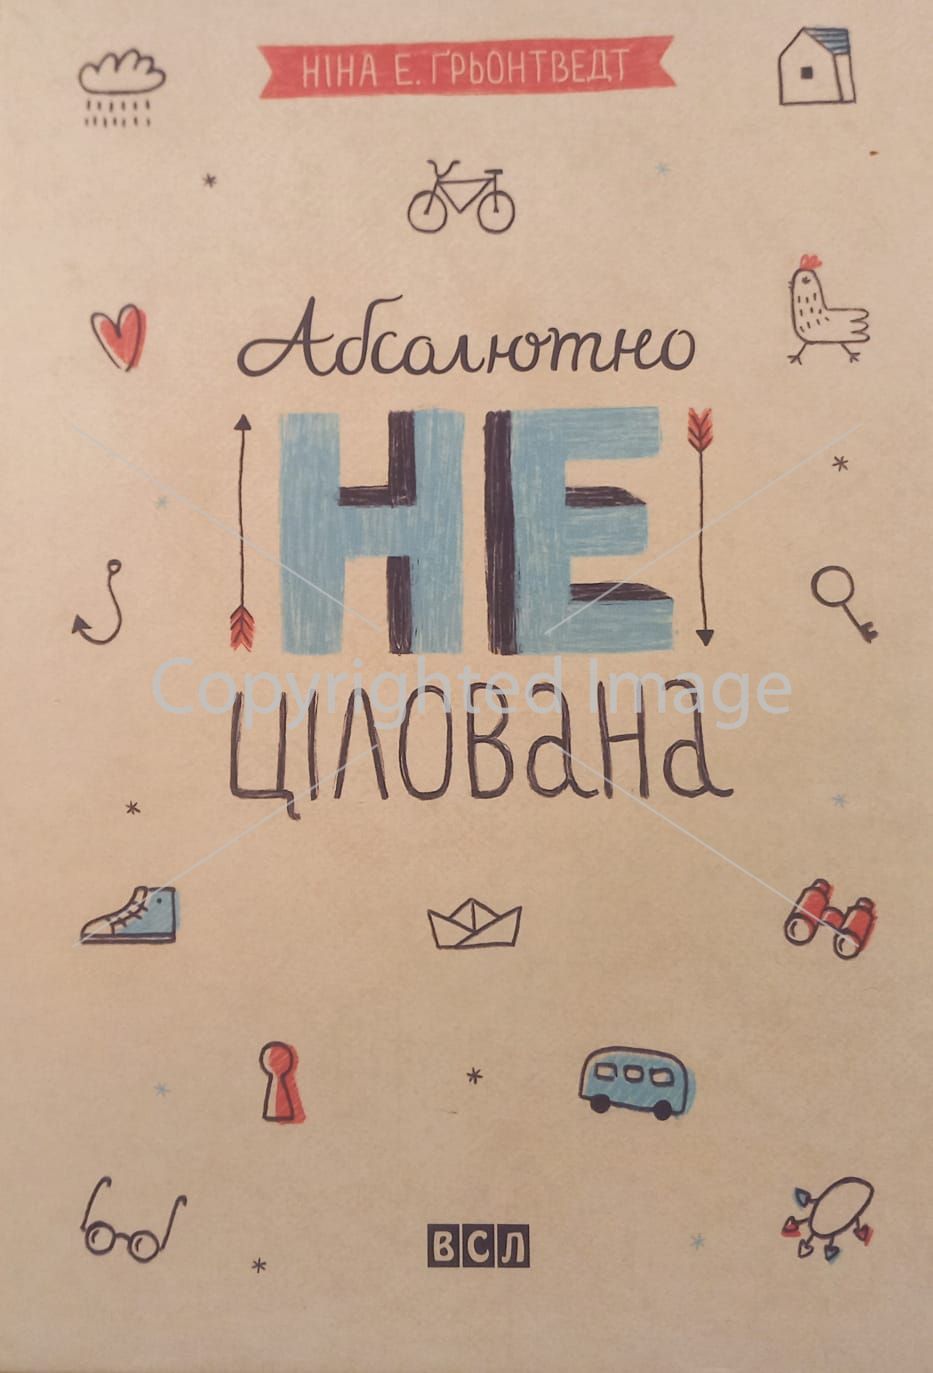 НІНА Е. ҐРЬОНТВЕДТ
Абсолютно
НЕ
ЦІЛОВАНА
Copyrighted Image
ВСЛ